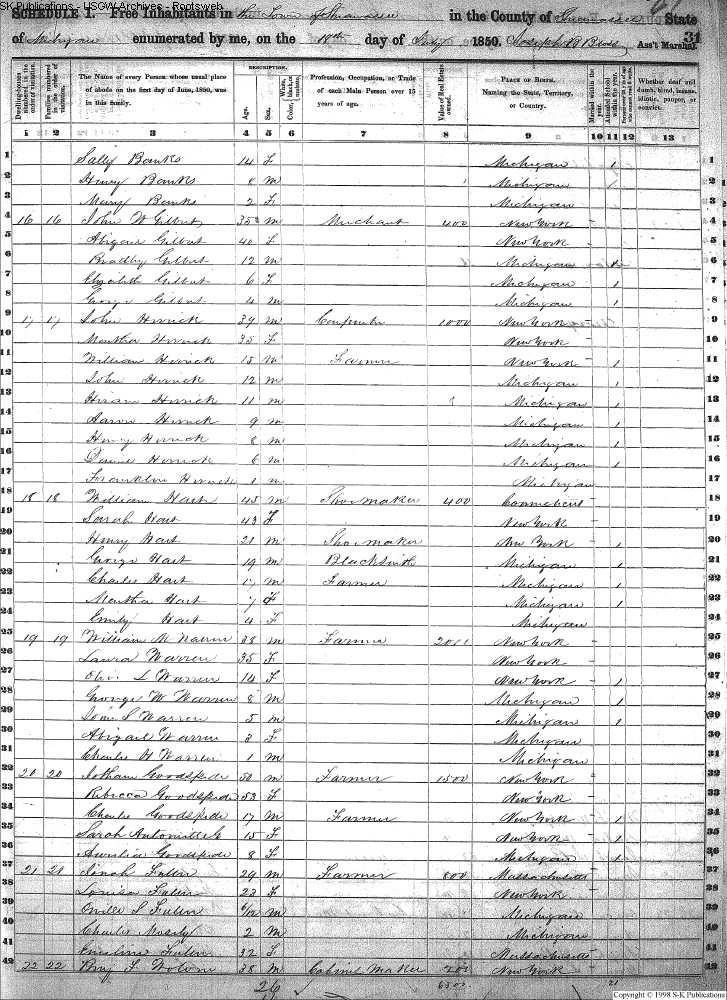 SK Publications - USGW Archives - Rootsweb
SCHEDULE I. Free Inhabitants in the Town of in the County of State
of Michigan enumerated by me, on the day of 1850. Joseph B Ass't Marshal. 31
DESCRIPTION.
Dwelling-houses numbered in the order of visitation. Families numbered in the order of visitation. The Name of every Person whose usual place of abode on the first day of June, 1850, was in this family. Age. Sex. Color, White, black, or mulatto. Profession, Occupation, or Trade of each Male Person over 15 years of age. Value of Real Estate owned. PLACE OF BIRTH. Naming the State, Territory, or Country. Married within the year. Attended School within the year. Whether deaf and dumb, blind, insane, idiotic, pauper, or convict.
1 2 3 4 5 6 7 8 9 10 11 12 13
1 Sally Banks 14 F Michigan 1 1
2 Henry Banks m Michigan 1 2
3 Mary Banks 2 F Michigan 3
4 16 16 John W Gilbert 35 m Merchant 400 New York 4
5 Abigail Gilbert 40 F New York 5
6 Bradley Gilbert 12 m Michigan 6
7 Elizabeth Gilbert 6 F Michigan 1 7
8 George Gilbert 4 m Michigan 1 8
9 17 17 John Herrick 39 m Carpenter 1000 New York 9
10 Martha Herrick 35 F New York 10
11 William Herrick 15 m Farmer New York 1 11
12 John Herrick 12 m Michigan 1 12
13 Hiram Herrick 11 m Michigan 1 13
14 Aaron Herrick 9 m Michigan 1 14
15 Henry Herrick 8 m Michigan 1 15
16 Herrick 6 m Michigan 1 16
17 Franklin Herrick 1 m Michigan 17
18 18 18 William Hart 45 m Shoemaker 400 Connecticut 18
19 Sarah Hart 43 F New York 19
20 Henry Hart 21 m Shoemaker New York 1 20
21 George Hart 19 m Blacksmith Michigan 1 21
22 Charles Hart 17 m Farmer Michigan 1 22
23 Martha Hart 7 F Michigan 1 23
24 Emily Hart 4 F Michigan 24
25 19 19 William M Warren 38 m Farmer New York 25
26 Laura Warren 35 F New York 26
27 L Warren 14 F New York 1 27
28 George W Warren 8 m Michigan 1 28
29 S Warren 5 m Michigan 1 29
30 Abigail Warren 3 F Michigan 30
31 Charles H Warren 1 m Michigan 31
32 20 20 Jotham Goodspeede 50 m Farmer 1500 New York 32
33 Rebecca Goodspeede 53 F New York 33
34 Charles Goodspeede 17 m Farmer New York 1 34
35 Sarah 15 F New York 1 35
36 Aurelia Goodspeede 8 F Michigan 1 36
37 21 21 Fuller 29 m Farmer 800 Massachusetts 37
38 Louisa Fuller 23 F New York 38
39 Orville S Fuller 6/12 m Michigan 39
40 Charles 2 m Michigan 40
41 Emeline Fuller 32 F Massachusetts 41
42 22 22 Benj F 38 m Cabinet Maker 200 New York 42
26
6800
21
Copyright © 1998 S-K Publications